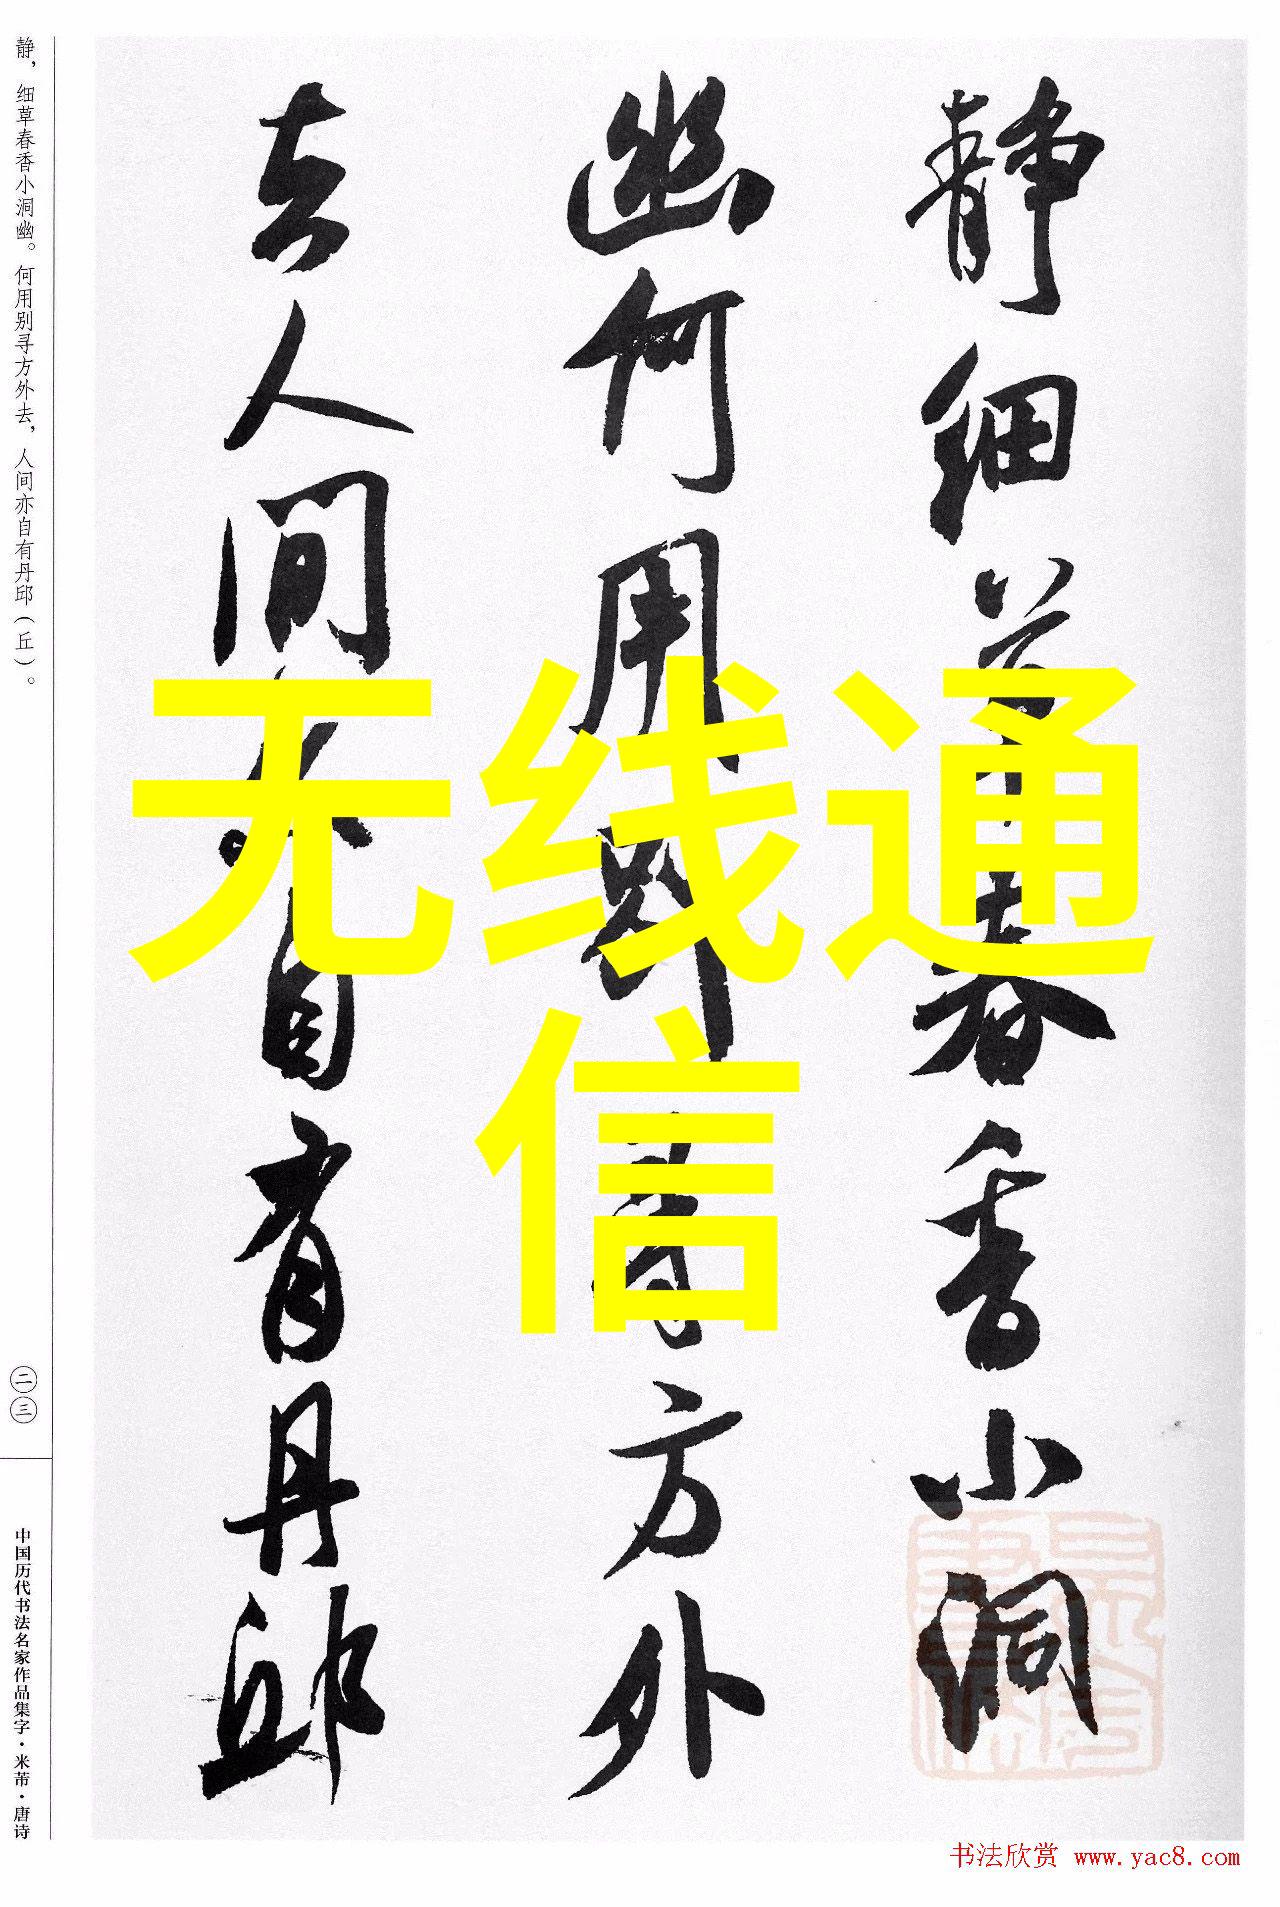 静细草春香小洞
幽何用别寻方外
去人间亦自有丹邱
无线通
信
静，细草春香小洞幽。何用别寻方外去，人间亦自有丹邱（丘）。
二三
中国历代书法名家作品集字·米芾·唐诗
书法欣赏 www.yac8.com